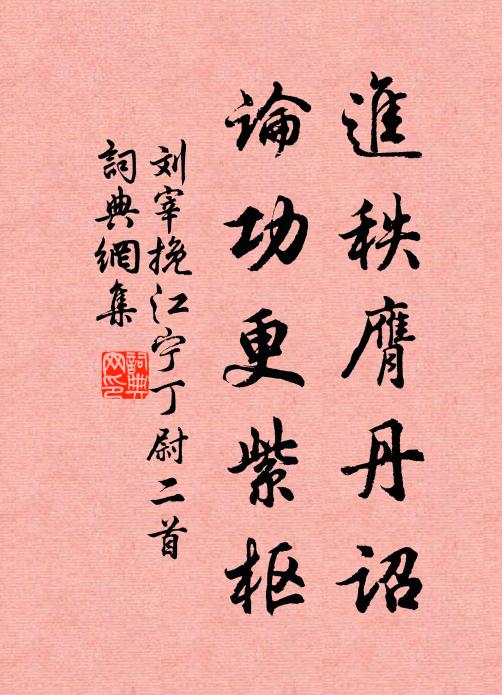 進秩膺丹詔
論功更紫枢
刘宰挽江宁丁尉二首
詞典網集
詞典网印